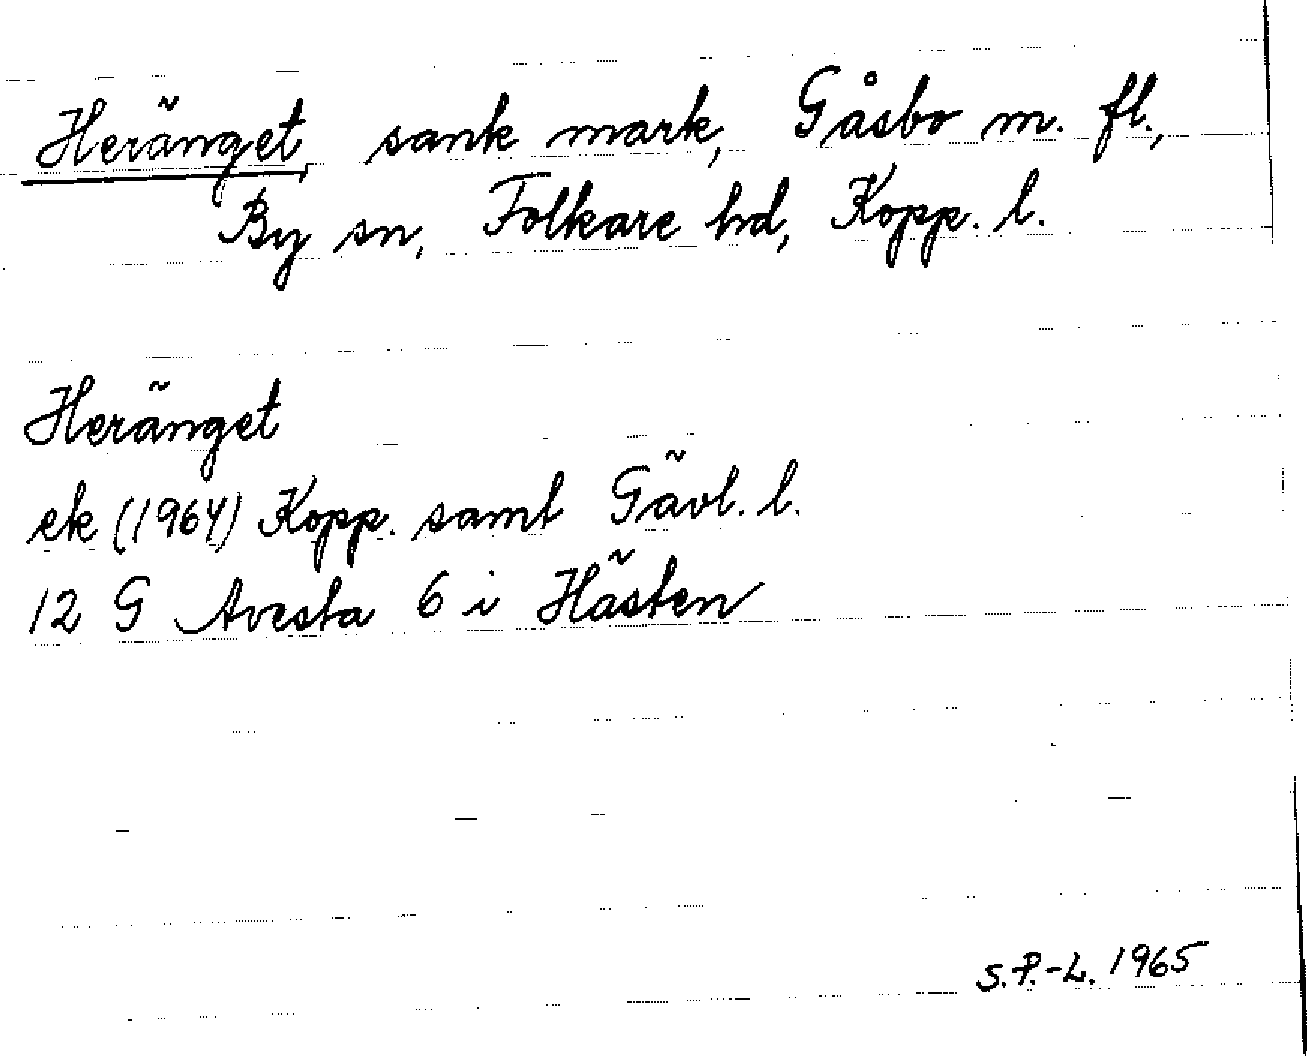 Heränget, sank mark, Gåsbo m. fl.,
By sn, Folkare hd, Kopp. l.
Heränget
ek (1964) Kopp. samt Gävl. l.
12 G Avesta 6 i Hästen
S.P.-L. 1965